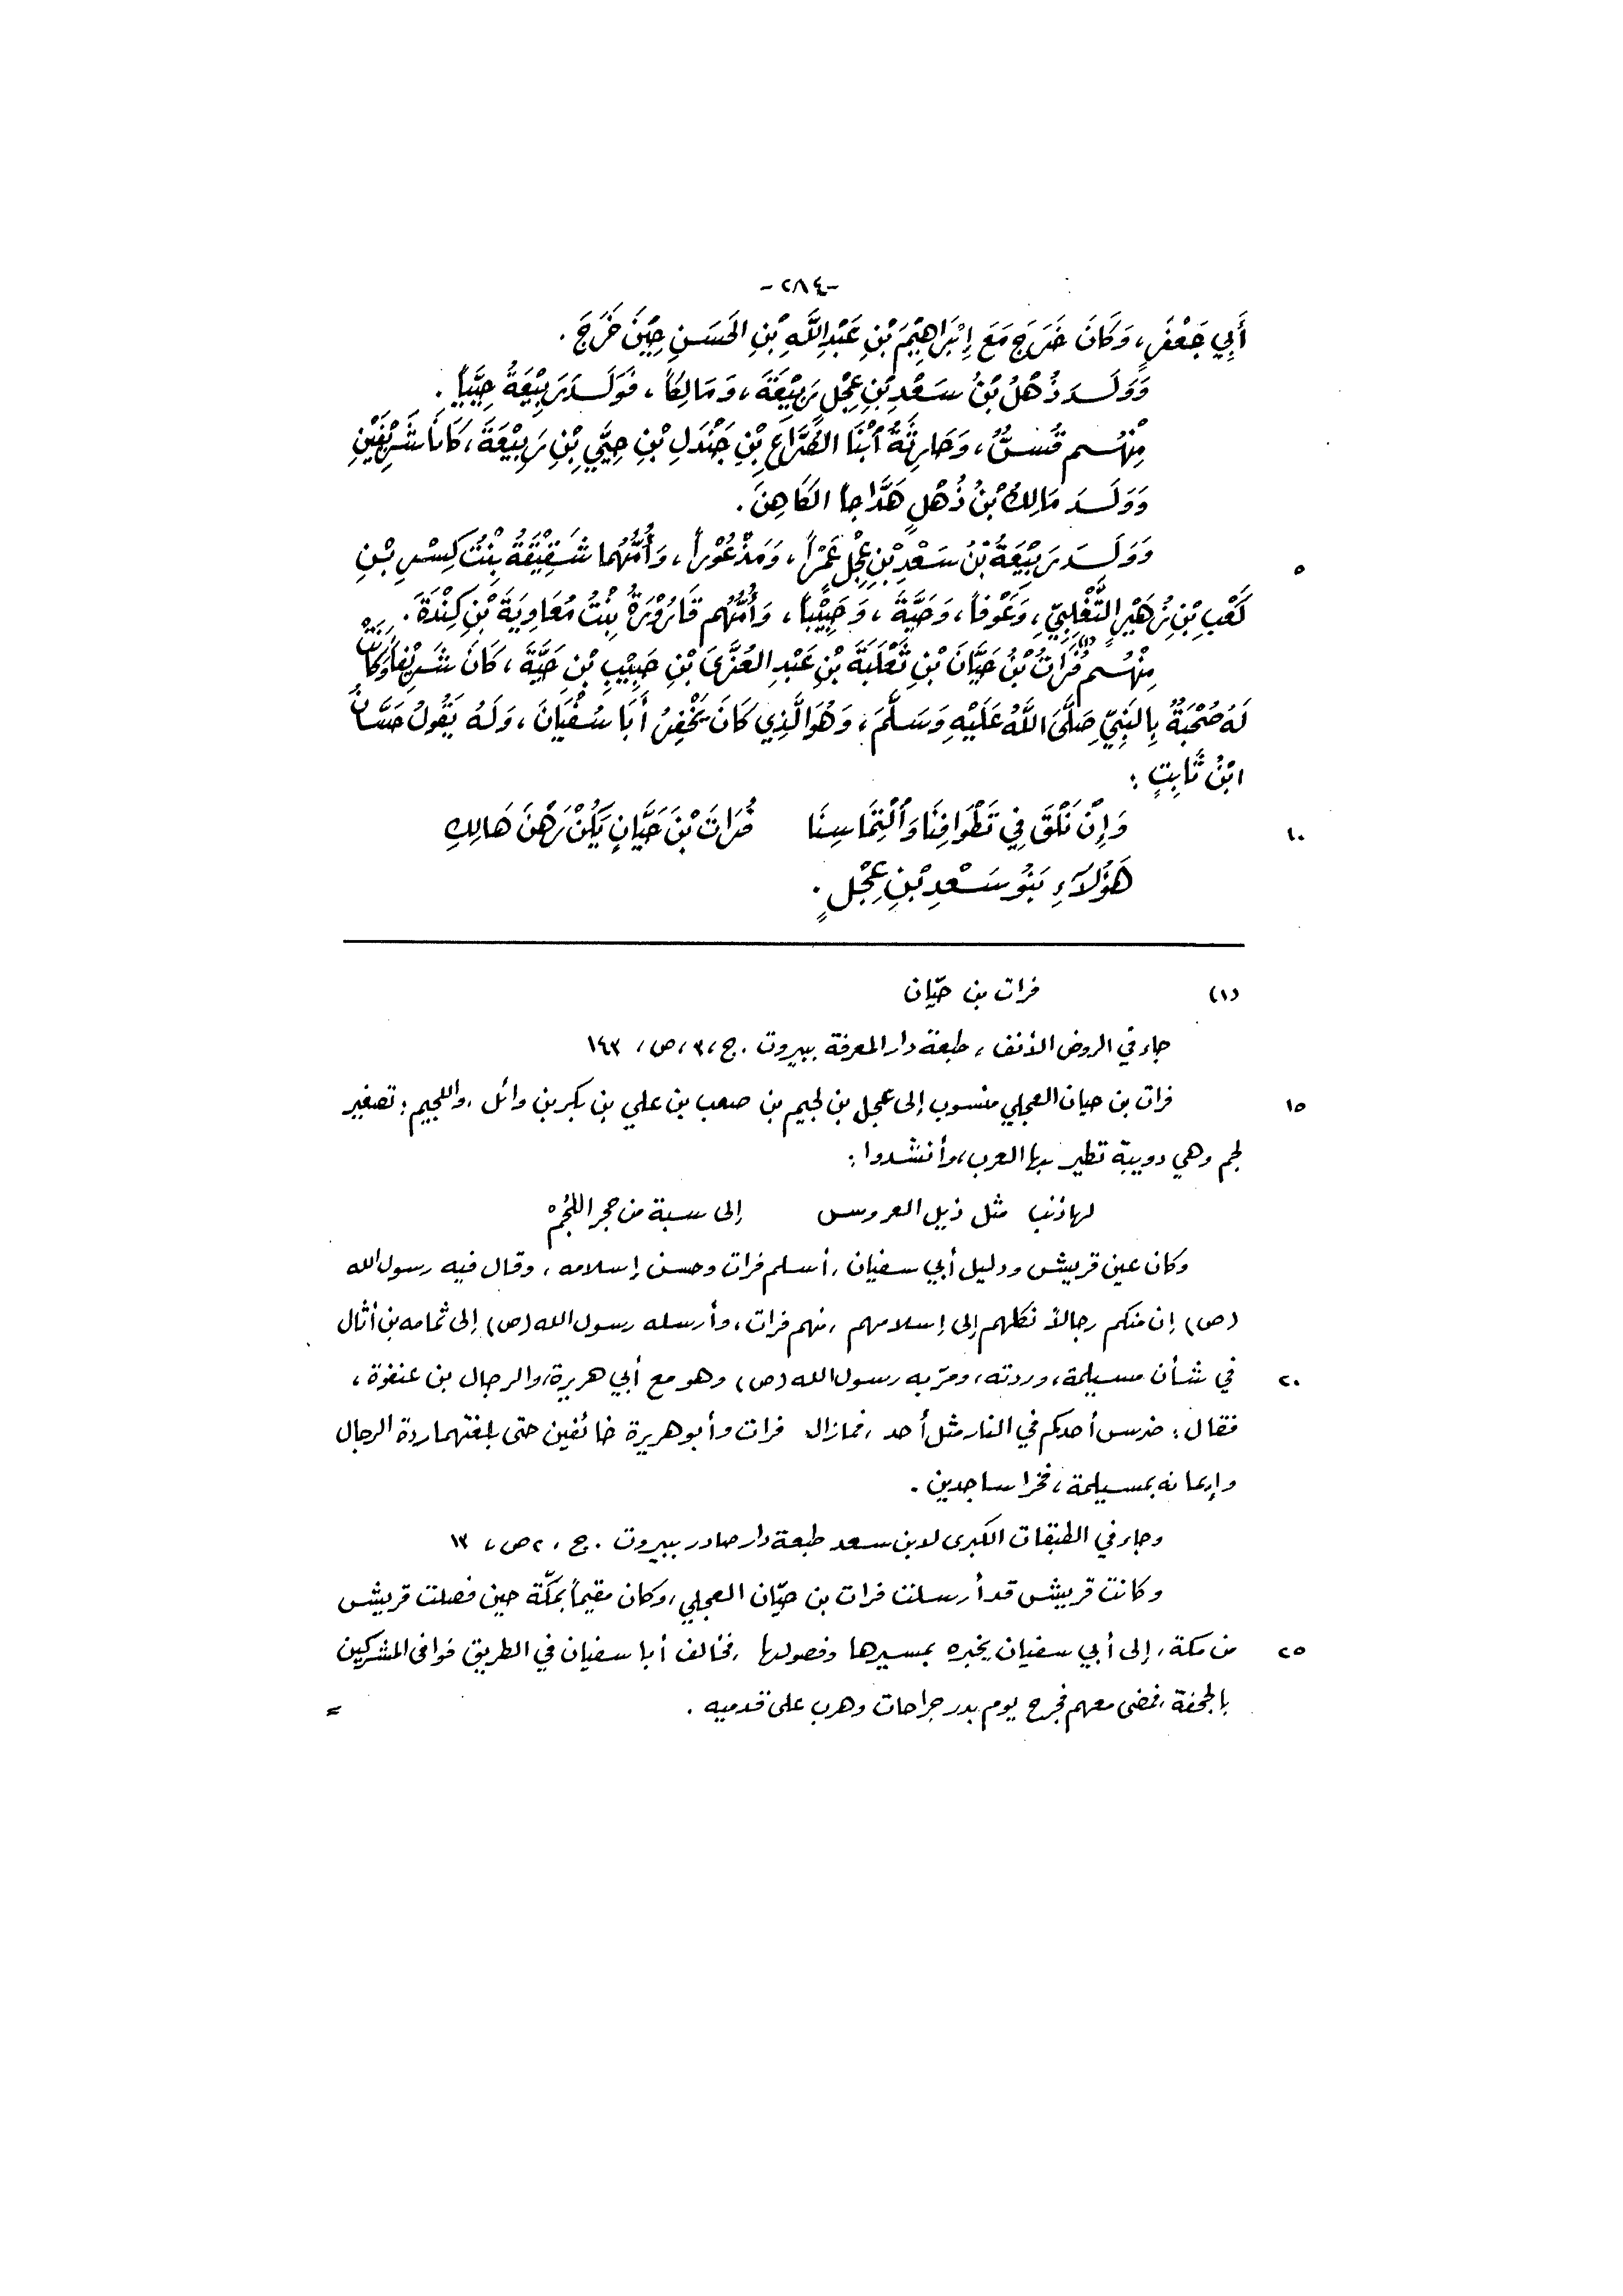 -٢٨٤-
أَبِي جَعْفَرٍ، وَكَانَ خَرَجَ مَعَ إِبْرَاهِيْمَ بْنِ عَبْدِ اللَّهِ بْنِ الحَسَنِ حِيْنَ خَرَجَ.
وَوَلَدَ ذُهْلُ بْنُ سَعْدِ بْنِ عِجْلٍ رَبِيْعَةَ، وَمَالِكاً، فَوَلَدَ رَبِيْعَةُ حِيَيّاً.
مِنْهُم قُسٌّ، وَحَارِثَةُ ابْنَا الصَّرَّاعِ بْنِ جَنْدَلِ بْنِ حِيَيِّ بْنِ رَبِيْعَةَ، كَانَا شَرِيْفَيْنِ
وَوَلَدَ مَالِكُ بْنُ ذُهْلٍ هَدَّاجاً الكَاهِنَ.
وَوَلَدَ رَبِيْعَةُ بْنُ سَعْدِ بْنِ عِجْلٍ عَمْراً، وَمَذْعُوْراً، وَأُمُّهُما شَقِيْقَةُ بِنْتُ كِسْرِ بْنِ ٥
كَعْبِ بْنِ زُهَيْرٍ التَّغْلِبِيِّ، وَعَوْفاً، وَحَيَّةَ، وَحَبِيْباً، وَأُمُّهُم قَارُوْرَةُ بِنْتُ مُعَاوِيَةَ بْنِ كِنْدَةَ.
مِنْهُم فُرَاتُ (١) بْنُ حَيَّانَ بْنِ ثَعْلَبَةَ بْنِ عَبْدِ العُزَّى بْنِ حَبِيْبِ بْنِ حَيَّةَ، كَانَ شَرِيْفاً وَكَانَتْ
لَهُ صُحْبَةٌ بِالنَبِيِّ صَلَّى اللَّهُ عَلَيْهِ وَسَلَّمَ، وَهُوَ الَّذِي كَانَ يَخْفِرُ أَبَا سُفْيَانَ، وَلَهُ يَقُولُ حَسَّانُ
ابْنُ ثَابِتٍ:
وَإِنْ نَلْقَ فِي تَطْوَافِنَا وَالْتِمَاسِنَا فُرَاتَ بْنَ حَيَّانٍ يَكُنْ رَهْنَ هَالِكِ ١٠
هَؤُلاَءِ بَنُو سَعْدِ بْنِ عِجْلٍ.
(١) فرات بن حيّان
جاء في الروض الأنف، طبعة دار المعرفة ببيروت. ج، ٣، ص، ١٤٣
فرات بن حيان العجلي منسوب إلى عجل بن لجيم بن صعب بن علي بن بكر بن وائل، واللجيم: تصغير ١٥
لجم وهي دويبة تطير بها العرب، وأنشدوا:
لها ذنب مثل ذيل العروس إلى سبة من حجر اللُجُمْ
وكان عين قريش ودليل أبي سفيان، أسلم فرات وحسن إسلامه، وقال فيه رسول الله
(ص) إن منكم رجالاً نكلهم إلى إسلامهم، منهم فرات، وأرسله رسول الله (ص) إلى ثمامه بن أثال
في شأن مسيلمة، وردته، ومرّ به رسول الله (ص) وهو مع أبي هريرة، والرجال بن عنفوة، ٢٠
فقال: ضرس أحدكم في النار مثل أحد، فما زال فرات وأبو هريرة خائفين حتى بلغتهما ردة الرجال
وإيمانه بمسيلمة، فخرا ساجدين.
وجاء في الطبقات الكبرى لابن سعد طبعة دار صادر ببيروت. ج، ٢ ص، ١٣
وكانت قريش قد أرسلت فرات بن حيّان العجلي، وكان مقيماً بمكّة حين فصلت قريش
من مكة، إلى أبي سفيان يخبره بمسيرها وفصولها، فخالف أبا سفيان في الطريق فوافى المشركين ٢٥
بالجحفة، فمضى معهم فجرح يوم بدر جراحات وهرب على قدميه. =